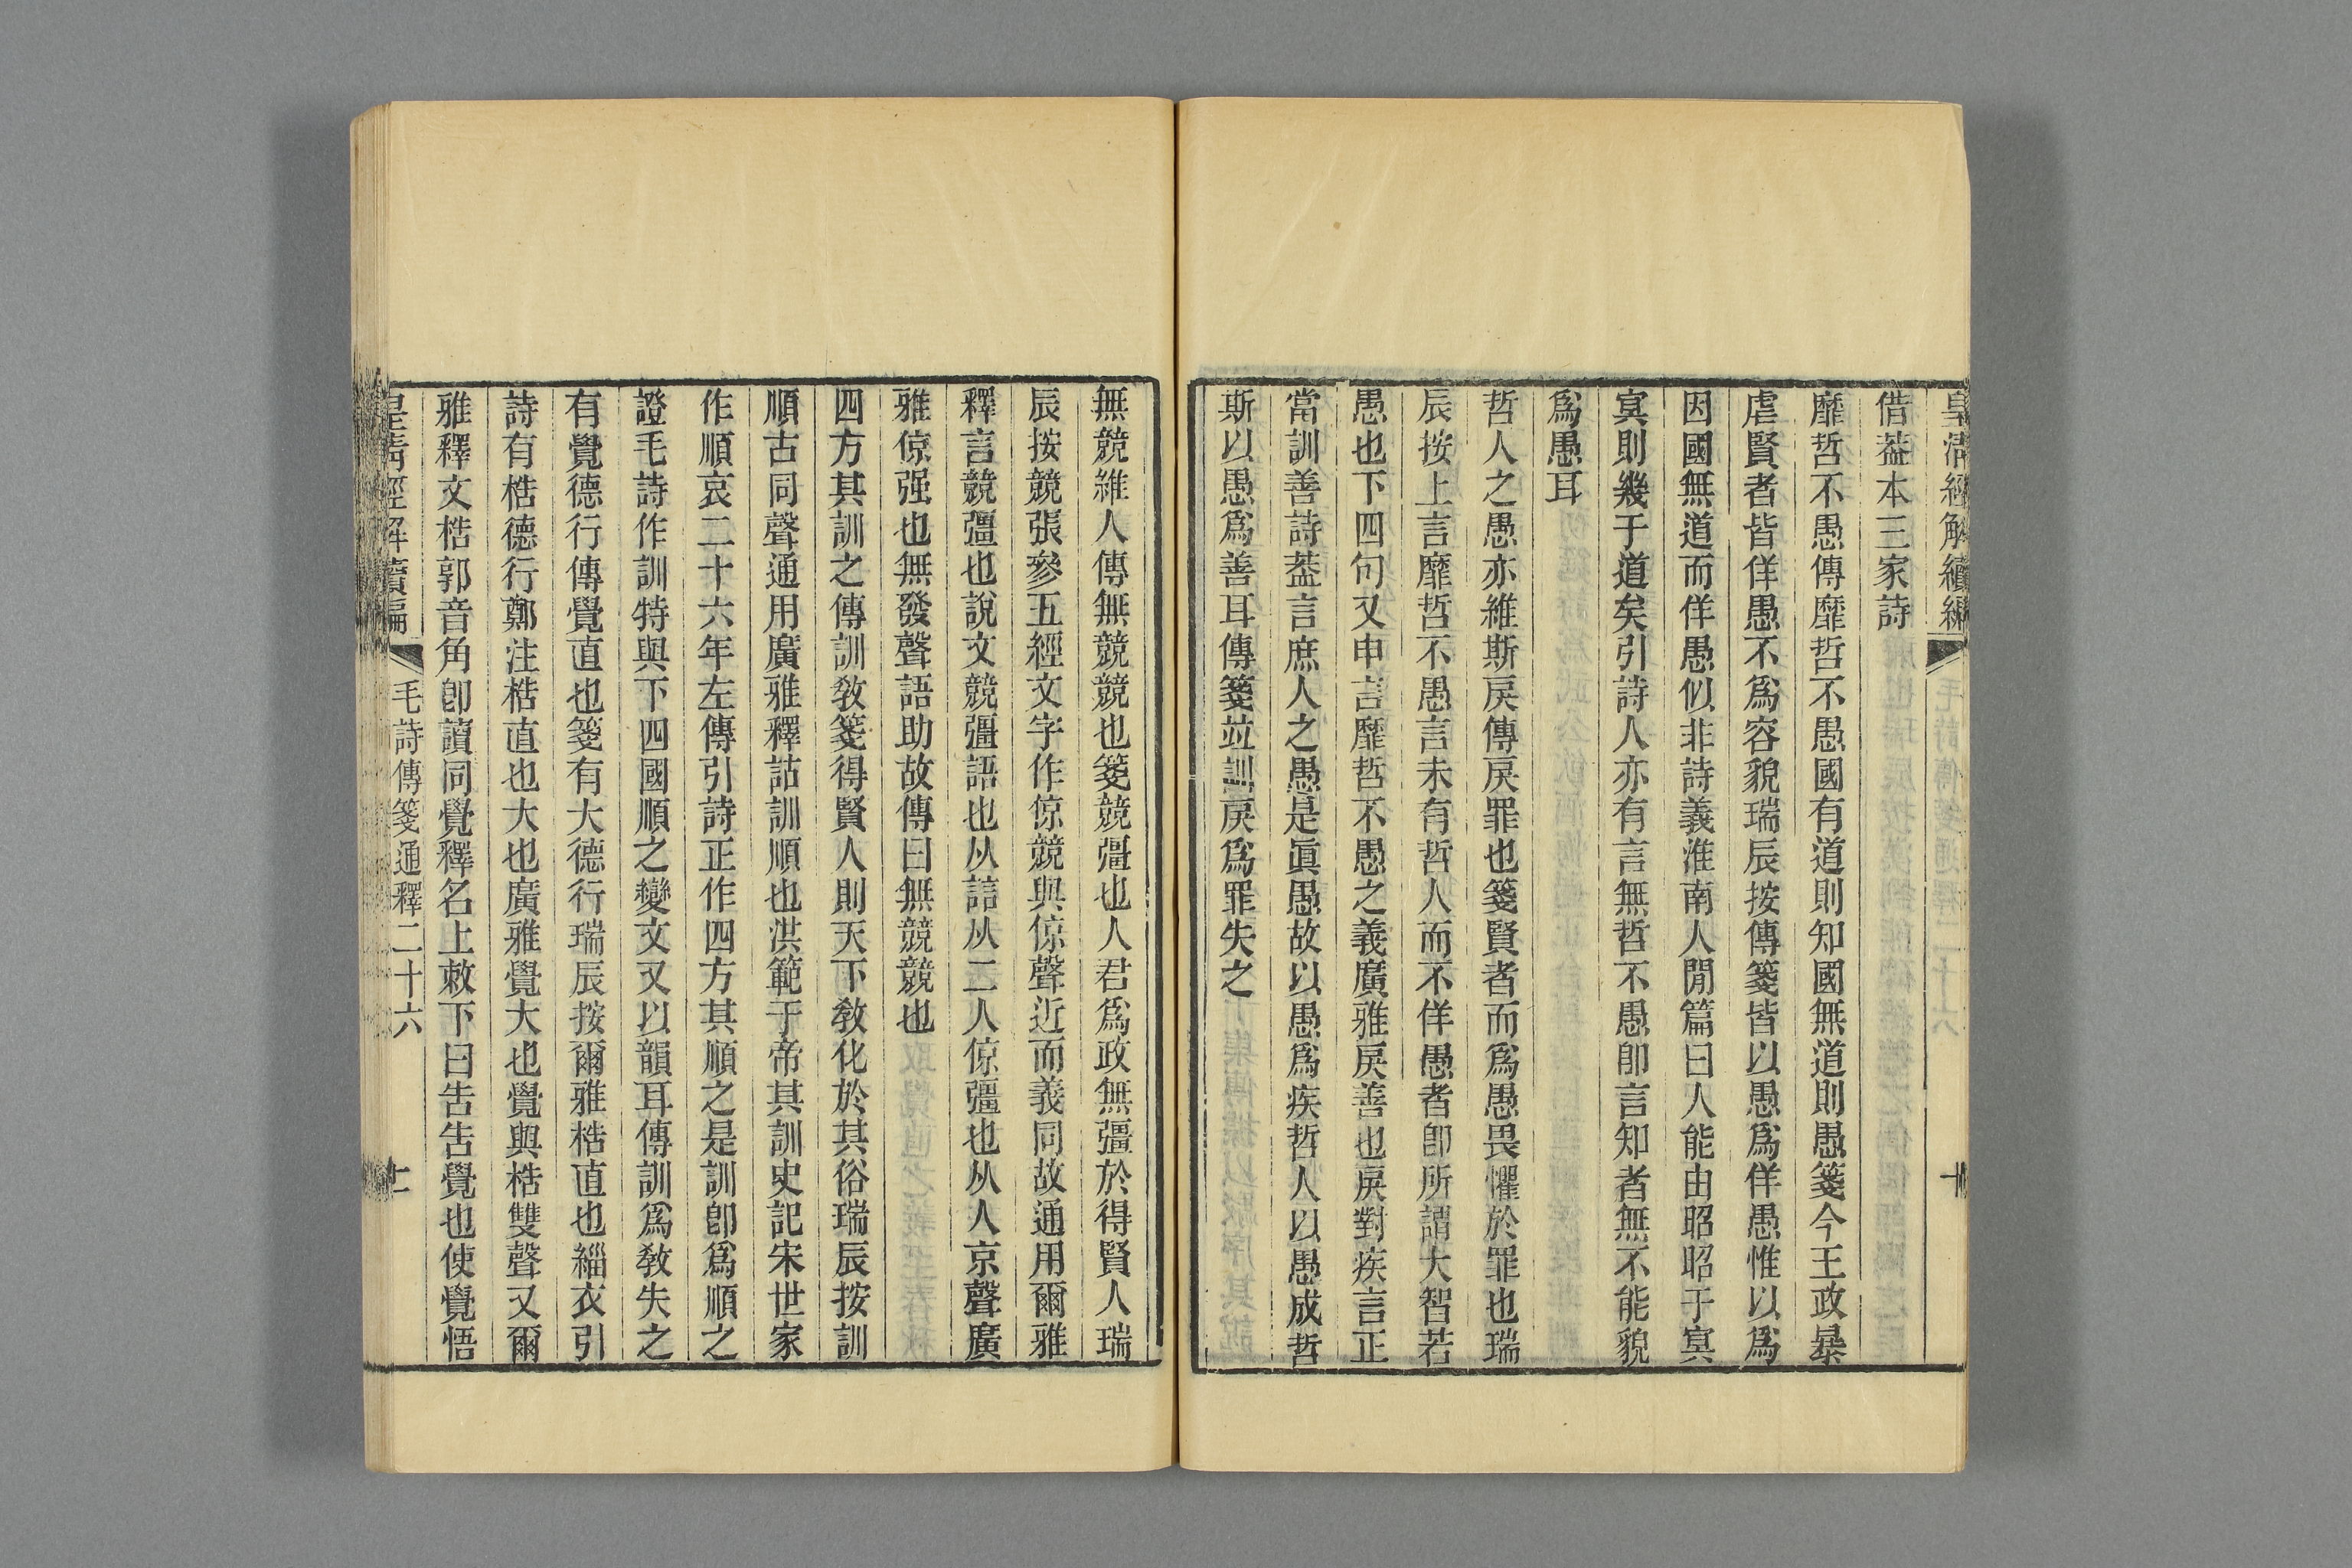 皇清經解續編
借葢本三家詩
靡哲不愚傳靡哲不愚國有道則知國無道則愚箋今王政暴
虐賢者皆佯愚不爲容貌瑞辰按傳箋皆以愚爲佯愚惟以爲
因國無道而佯愚似非詩義淮南人閒篇曰人能由昭昭于冥
冥則幾于道矣引詩人亦有言無哲不愚卽言知者無不能貌
爲愚耳
哲人之愚亦維斯戾傳戾罪也箋賢者而爲愚畏懼於罪也瑞
辰按上言靡哲不愚言未有哲人而不佯愚者卽所謂大智若
愚也下四句又申言靡哲不愚之義廣雅戾善也戾對疾言正
當訓善詩葢言庶人之愚是眞愚故以愚爲疾哲人以愚成哲
斯以愚爲善耳傳箋竝訓戾爲罪失之
無競維人傳無競競也箋競彊也人君爲政無彊於得賢人瑞
辰按競張參五經文字作倞競與倞聲近而義同故通用爾雅
釋言競彊也說文競彊語也从誩从二人倞彊也从人京聲廣
雅倞强也無發聲語助故傳曰無競競也
四方其訓之傳訓敎箋得賢人則天下敎化於其俗瑞辰按訓
順古同聲通用廣雅釋詁訓順也洪範于帝其訓史記宋世家
作順哀二十六年左傳引詩正作四方其順之是訓卽爲順之
證毛詩作訓特與下四國順之變文又以韻耳傳訓爲敎失之
有覺德行傳覺直也箋有大德行瑞辰按爾雅梏直也緇衣引
詩有梏德行鄭注梏直也大也廣雅覺大也覺與梏雙聲又爾
雅釋文梏郭音角卽讀同覺釋名上敕下曰告告覺也使覺悟
皇清經解續編
毛詩傳箋通釋二十六